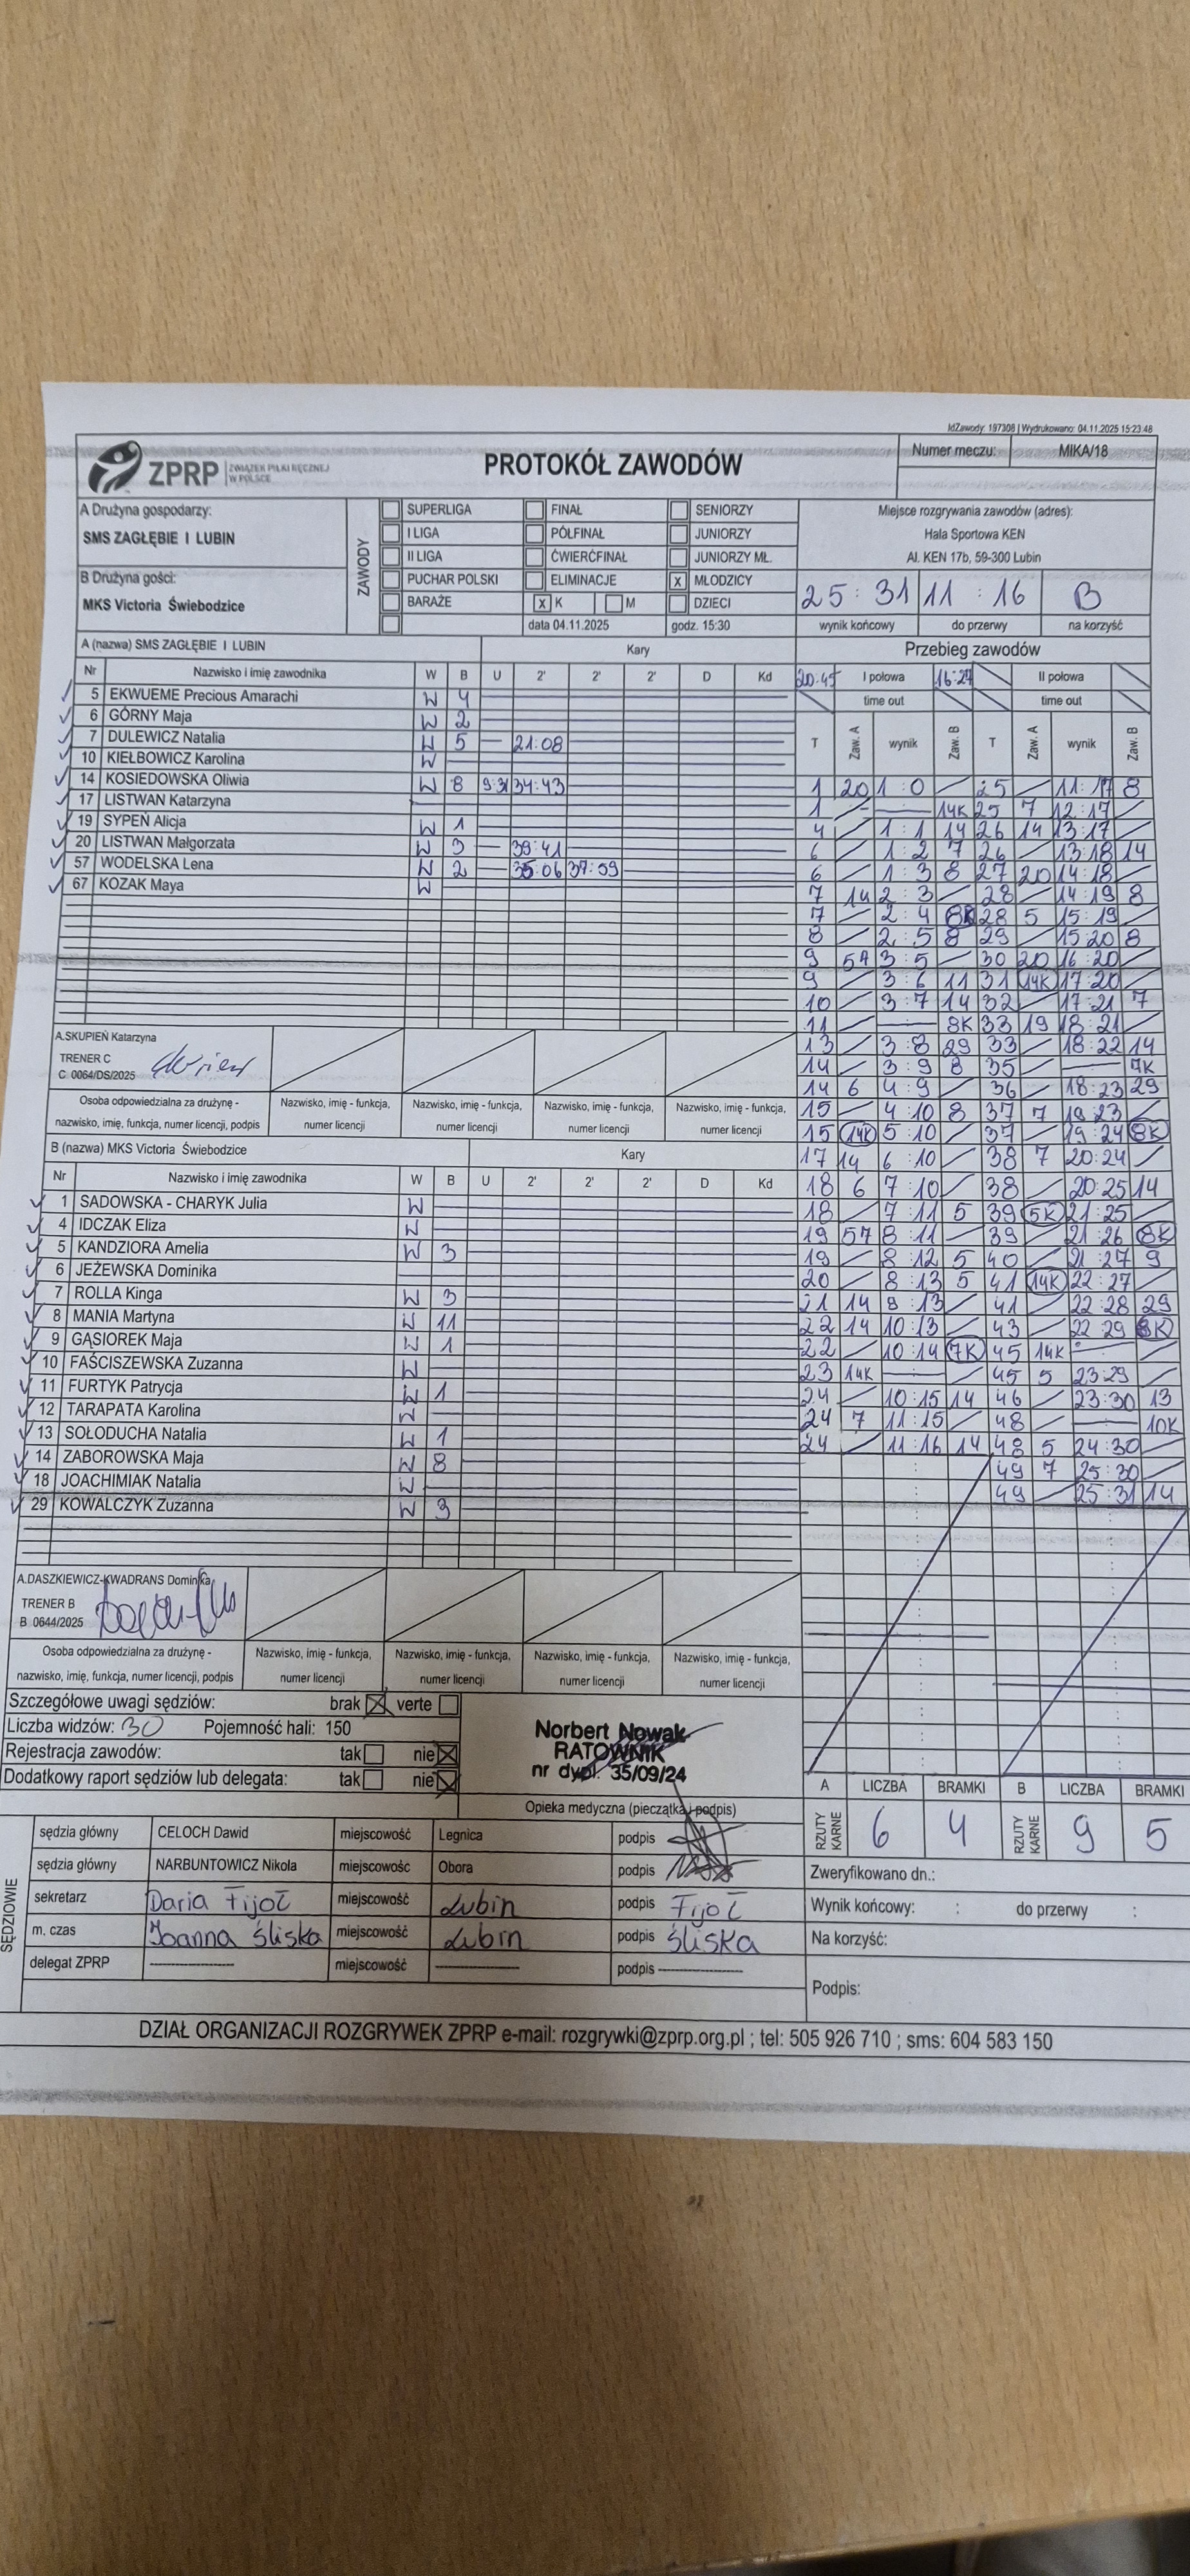 IdZawody: 197308 | Wydrukowano: 04.11.2025 15:23:48
ZPRP ZWIĄZEK PIŁKI RĘCZNEJ W POLSCE
PROTOKÓŁ ZAWODÓW
Numer meczu: MIKA/18
A Drużyna gospodarzy:
SMS ZAGŁĘBIE I LUBIN
B Drużyna gości:
MKS Victoria Świebodzice
ZAWODY
SUPERLIGA FINAŁ SENIORZY
I LIGA PÓŁFINAŁ JUNIORZY
II LIGA ĆWIERĆFINAŁ JUNIORZY MŁ.
PUCHAR POLSKI ELIMINACJE x MŁODZICY
BARAŻE x K M DZIECI
data 04.11.2025 godz. 15:30
Miejsce rozgrywania zawodów (adres):
Hala Sportowa KEN
Al. KEN 17b, 59-300 Lubin
25:31 11:16 B
wynik końcowy do przerwy na korzyść
A (nazwa) SMS ZAGŁĘBIE I LUBIN Kary
Nr Nazwisko i imię zawodnika W B U 2' 2' 2' D Kd
5 EKWUEME Precious Amarachi W 4
6 GÓRNY Maja W 2
7 DULEWICZ Natalia W 5 21:08
10 KIEŁBOWICZ Karolina W
14 KOSIEDOWSKA Oliwia W 8 34:43
17 LISTWAN Katarzyna
19 SYPEŃ Alicja W 1
20 LISTWAN Małgorzata W 3 39:41
57 WODELSKA Lena W 2 35:06 37:59
67 KOZAK Maya W
A.SKUPIEŃ Katarzyna
TRENER C
C 0064/DS/2025
Osoba odpowiedzialna za drużynę -
nazwisko, imię, funkcja, numer licencji, podpis
Nazwisko, imię - funkcja, numer licencji
Nazwisko, imię - funkcja, numer licencji
Nazwisko, imię - funkcja, numer licencji
Nazwisko, imię - funkcja, numer licencji
B (nazwa) MKS Victoria Świebodzice Kary
Nr Nazwisko i imię zawodnika W B U 2' 2' 2' D Kd
1 SADOWSKA - CHARYK Julia W
4 IDCZAK Eliza W
5 KANDZIORA Amelia W 3
6 JEŻEWSKA Dominika
7 ROLLA Kinga W 3
8 MANIA Martyna W 11
9 GĄSIOREK Maja W 1
10 FAŚCISZEWSKA Zuzanna W
11 FURTYK Patrycja W 1
12 TARAPATA Karolina W
13 SOŁODUCHA Natalia W 1
14 ZABOROWSKA Maja W 8
18 JOACHIMIAK Natalia W
29 KOWALCZYK Zuzanna W 3
A.DASZKIEWICZ-KWADRANS Dominika
TRENER B
B 0644/2025
Osoba odpowiedzialna za drużynę -
nazwisko, imię, funkcja, numer licencji, podpis
Nazwisko, imię - funkcja, numer licencji
Nazwisko, imię - funkcja, numer licencji
Nazwisko, imię - funkcja, numer licencji
Nazwisko, imię - funkcja, numer licencji
Przebieg zawodów
20:45 I połowa 16:27 II połowa
time out time out
T Zaw. A wynik Zaw. B T Zaw. A wynik Zaw. B
1 20 1:0 25 11:17 8
1 14K 25 7 12:17
4 1:1 14 26 14 13:17
6 1:2 7 26 13:18 14
6 1:3 8 27 20 14:18
7 14 2:3 28 14:19 8
7 2:4 8K 28 5 15:19
8 2:5 8 29 15:20 8
9 57 3:5 30 20 16:20
9 3:6 11 31 14K 17:20
10 3:7 14 32 17:21 7
11 8K 33 19 18:21
13 3:8 29 33 18:22 14
14 3:9 8 35 7K
14 6 4:9 36 18:23 29
15 4:10 8 37 7 19:23
15 14K 5:10 37 19:24 8K
17 14 6:10 38 7 20:24
18 6 7:10 38 20:25 14
18 7:11 5 39 5K 21:25
19 57 8:11 39 21:26 8K
19 8:12 5 40 21:27 9
20 8:13 5 41 14K 22:27
21 14 9:13 41 22:28 29
22 14 10:13 43 22:29 8K
22 10:14 7K 45 14K
23 14K 45 5 23:29
24 10:15 14 46 23:30 13
24 7 11:15 48 10K
24 11:16 14 48 5 24:30
49 7 25:30
49 25:31 14
Szczegółowe uwagi sędziów: brak verte
Liczba widzów: 30 Pojemność hali: 150
Rejestracja zawodów: tak nie
Dodatkowy raport sędziów lub delegata: tak nie
Norbert Nowak
RATOWNIK
nr dypl. 35/09/24
Opieka medyczna (pieczątka i podpis)
A LICZBA BRAMKI B LICZBA BRAMKI
RZUTY KARNE 6 4 RZUTY KARNE 9 5
SĘDZIOWIE
sędzia główny CELOCH Dawid miejscowość Legnica podpis
sędzia główny NARBUNTOWICZ Nikola miejscowość Obora podpis
sekretarz Daria Fijoł miejscowość Lubin podpis Fijoł
m. czas Joanna Śliska miejscowość Lubin podpis Śliska
delegat ZPRP miejscowość podpis
Zweryfikowano dn.:
Wynik końcowy: : do przerwy :
Na korzyść:
Podpis:
DZIAŁ ORGANIZACJI ROZGRYWEK ZPRP e-mail: rozgrywki@zprp.org.pl ; tel: 505 926 710 ; sms: 604 583 150